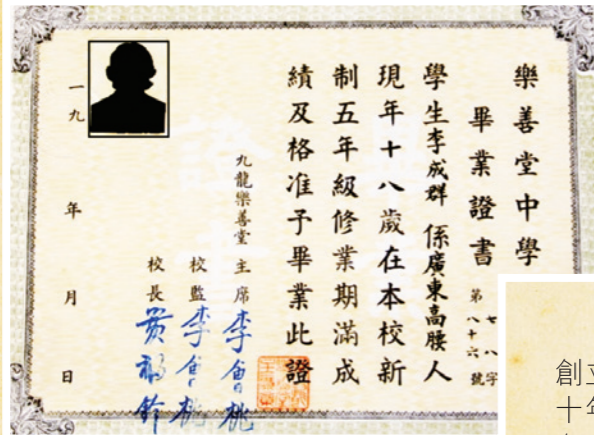 樂善堂中學
畢業證書
第七八字
八十六號
學生李成群 係廣東高腰人
現年十八歲在本校新
制五年級修業期滿成
績及格准予畢業此證
九龍樂善堂 主席 李
校監 李
校長
一九 年 月 日
創立
十年